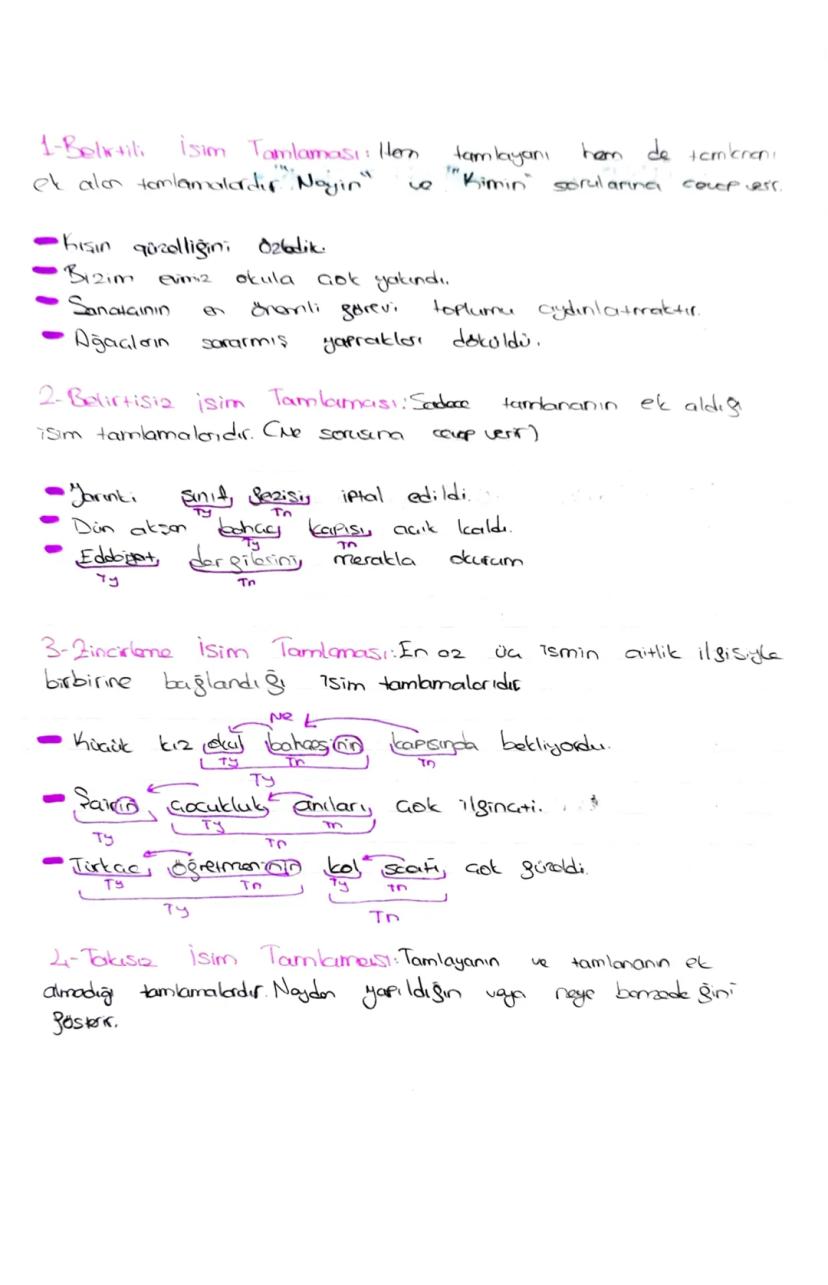 1-Belirtili İsim Tamlaması: Hem tamlayanı hem de tamlananı
ek alan tamlamalardır "Neyin" ve "Kimin" sorularına cevap verir.
Kışın güzelliğini özledik.
Bizim evimiz okula çok yakındı.
Sanatçının en önemli görevi toplumu aydınlatmaktır.
Ağaçların sararmış yaprakları döküldü.
2-Belirtisiz isim Tamlaması: Sadece tamlananın ek aldığı
isim tamlamalarıdır. (Ne sorusuna cevap verir)
Yarınki sınıf gezisi iptal edildi.
Ty Tn
Dün akşam bahçe kapısı açık kaldı.
Ty Tn
Edebiyat dergilerini merakla okurum
Ty Tn
3-Zincirleme İsim Tamlaması: En az üç ismin aitlik ilgisiyle
birbirine bağlandığı isim tamlamalarıdır
Ne
Küçük kız okul bahçesinin kapısında bekliyordu.
Ty Tn Tn
Ty
Şairin çocukluk anıları çok ilginçti.
Ty Ty Tn
Tn
Türkçe öğretmeninin kol saati çok güzeldi.
Ty Tn Ty Tn
Ty Tn
4-Takısız İsim Tamlaması: Tamlayanın ve tamlananın ek
almadığı tamlamalardır. Neyden yapıldığın veya neye benzediğini
gösterir.